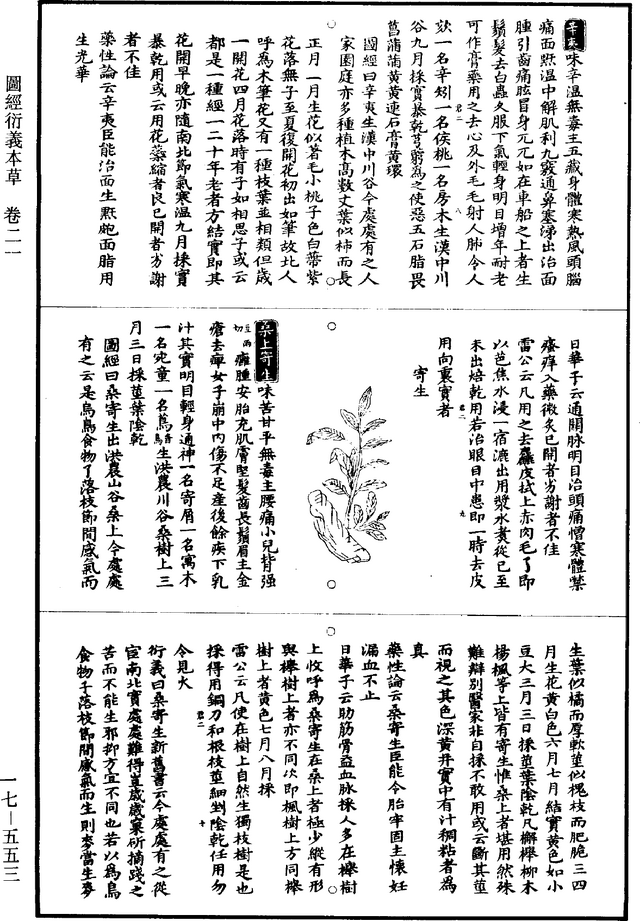 圖經衍義本草 卷二一
一七—五五三
辛夷 味辛溫無毒主五藏身體寒熱風頭腦
痛面䵟溫中解肌利九竅通鼻塞涕出治面
腫引齒痛眩冒身兀兀如在車船之上者生
鬚髮去白蟲久服下氣輕身明目增年耐老
可作膏藥用之去心及外毛毛射人肺令人
欬一名辛矧一名侯桃一名房木生漢中川
谷九月採實暴乾芎藭為之使惡五石脂畏
菖蒲蒲黃黃連石膏黃環
圖經曰辛夷生漢中川谷今處處有之人
家園庭亦多種植木高數丈葉似柿而長
正月二月生花似著毛小桃子色白帶紫
花落無子至夏復開花初出如筆故北人
呼為木筆花又有一種枝葉並相類但歲
一開花四月花落時有子如相思子或云
都是一種經一二十年老者方結實即其
花開早晚亦隨南北節氣寒溫九月採實
暴乾用或云用花蘂縮者良已開者劣謝
者不佳
藥性論云辛夷臣能治面生䵟皰面脂用
生光華
日華子云通關脉明目治頭痛憎寒體噤
瘙痒入藥微炙已開者劣謝者不佳
雷公云凡用之去麤皮拭上赤肉毛了即
以芭焦水浸一宿漉出用漿水煮從巳至
未出焙乾用若治眼目中患即一時去皮
用向裏實者
寄生
桑上寄生 味苦甘平無毒主腰痛小兒背强
癰腫安胎充肌膚堅髮齒長鬚眉主金
瘡去痺女子崩中內傷不足產後餘疾下乳
汁其實明目輕身通神一名寄屑一名寓木
一名宛童一名蔦生洪農川谷桑樹上三
月三日採莖葉陰乾
圖經曰桑寄生出洪農山谷桑上今處處
有之云是烏鳥食物子落枝節間感氣而
生葉似橘而厚軟莖似槐枝而肥脆三四
月生花黃白色六月七月結實黃色如小
豆大三月三日採莖葉陰乾凡槲櫸柳木
楊楓等上皆有寄生惟桑上者堪用然殊
難辯別醫家非自採不敢用或云斷其莖
而視之其色深黃并實中有汁稠粘者為
真
藥性論云桑寄生臣能令胎牢固主懷妊
漏血不止
日華子云助筋骨益血脉採人多在櫸樹
上收呼為桑寄生在桑上者極少縱有形
與櫸樹上者亦不同次即楓樹上力同櫸
樹上者黃色七月八月採
雷公云凡使在樹上自然生獨枝樹是也
採得用銅刀和根枝莖細剉陰乾任用勿
令見火
衍義曰桑寄生新舊書云今處處有之從
宦南北實處處難得豈歲歲窠斫摘踐之
苦而不能生邪抑方宜不同也若以為鳥
食物子落枝節間感氣而生則麥當生麥